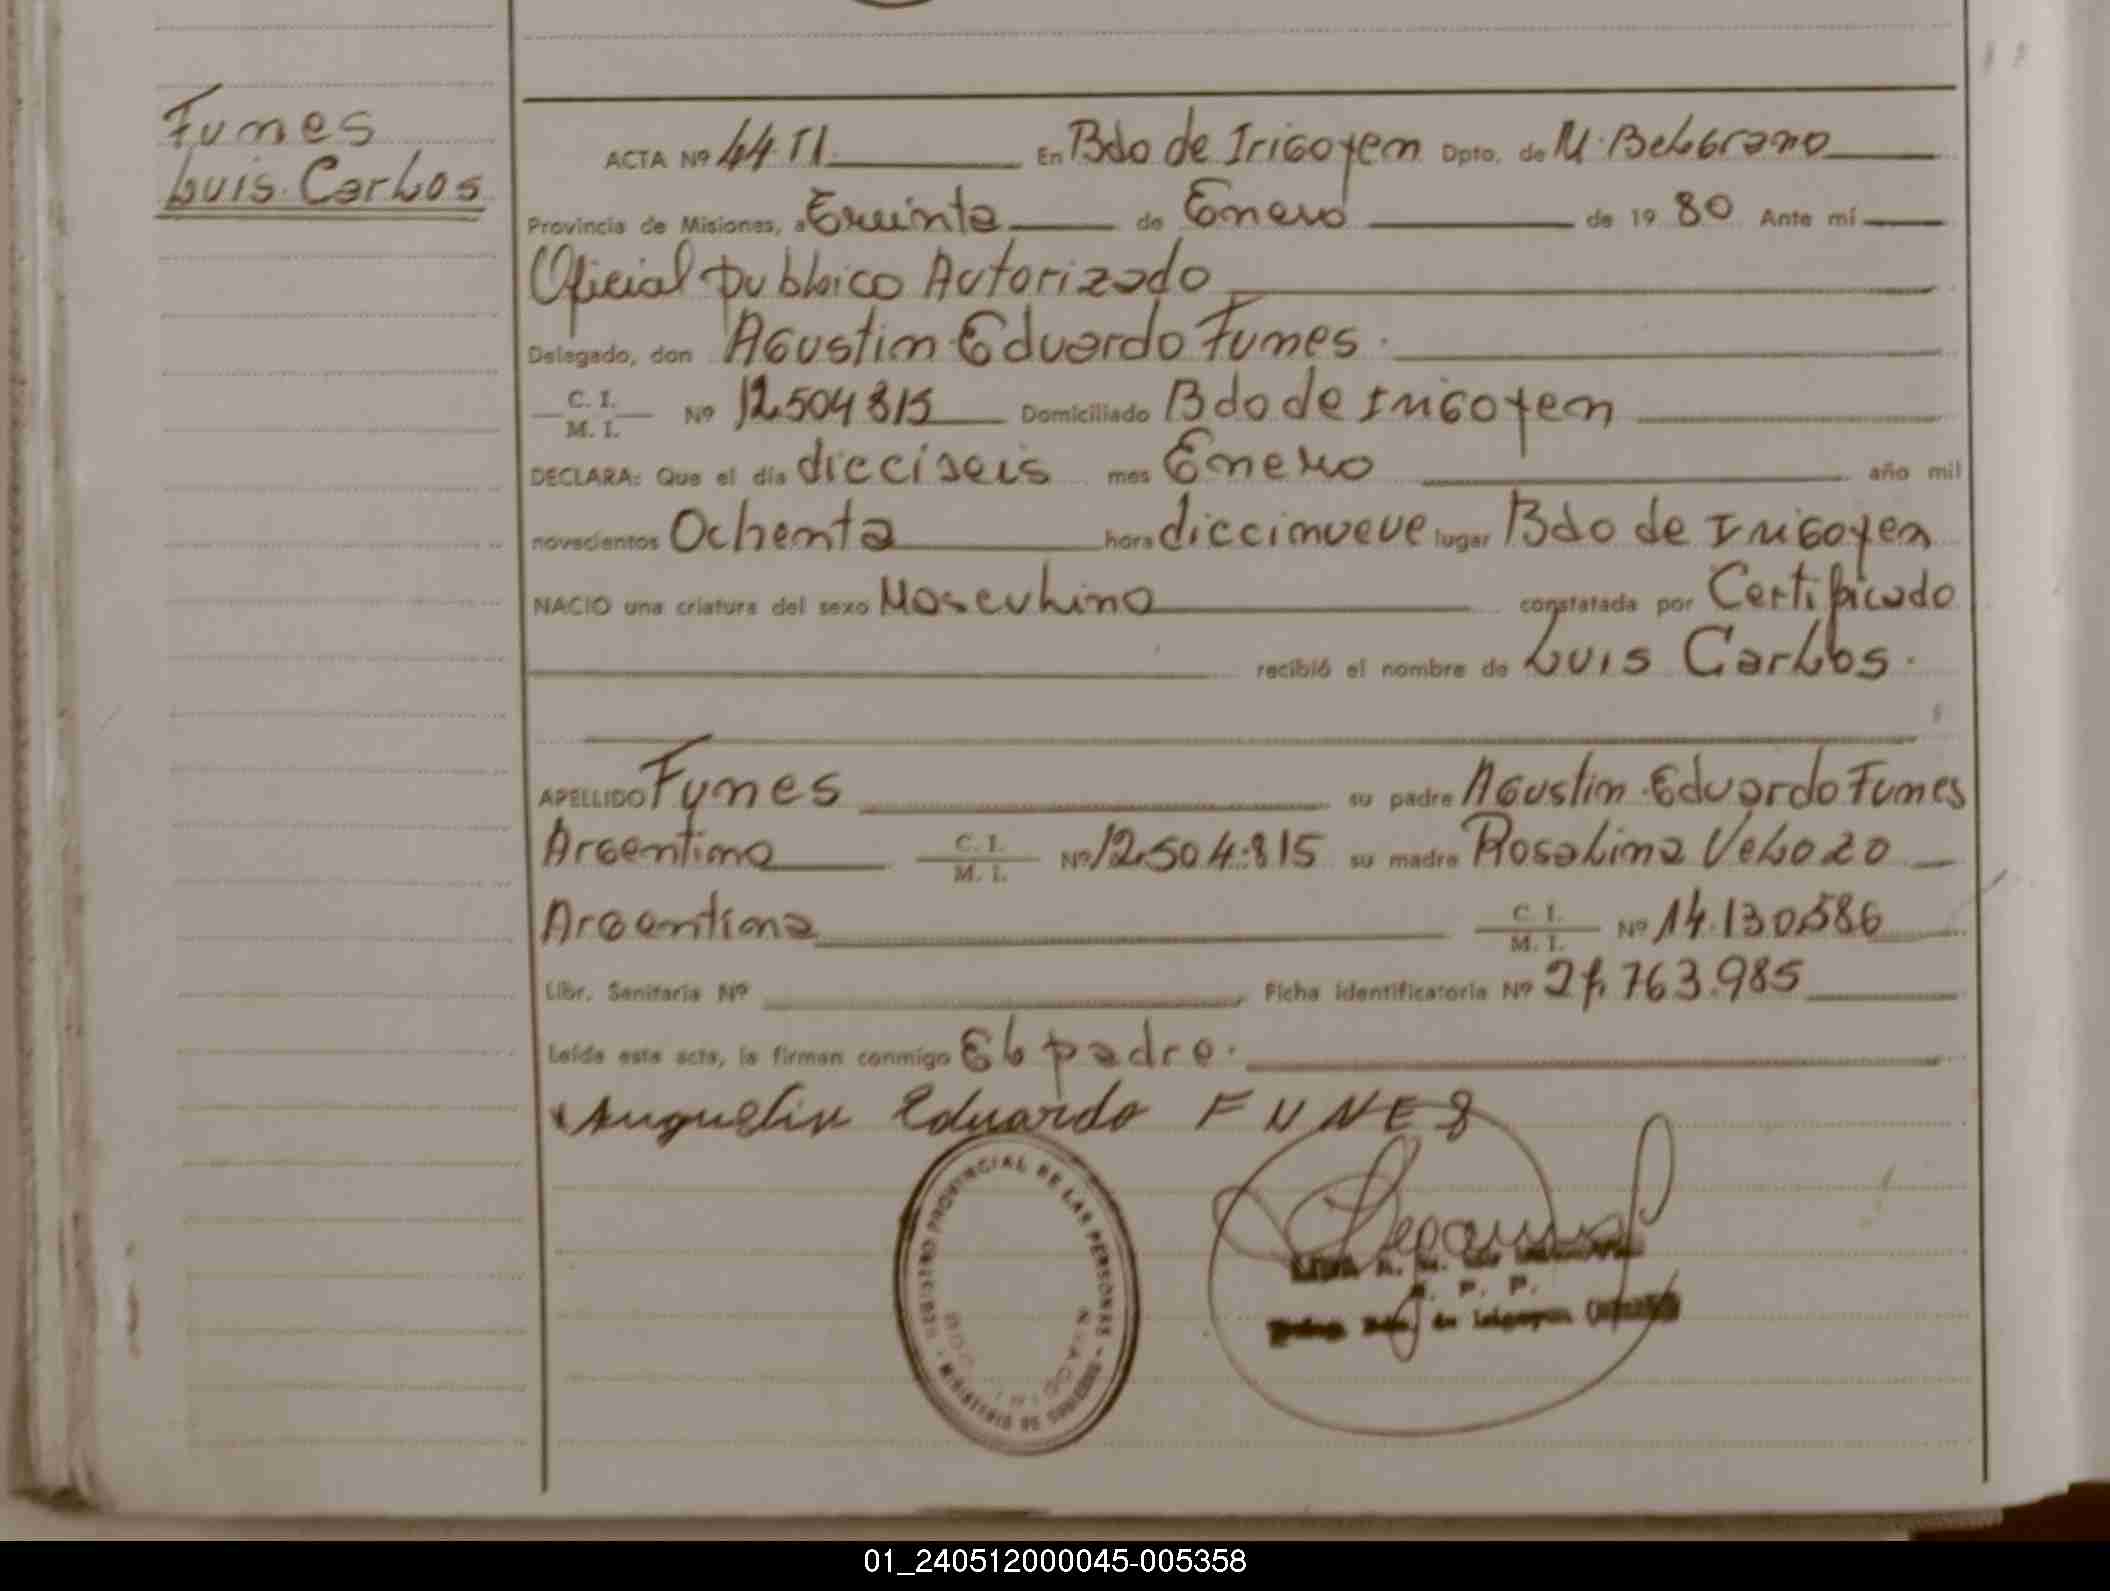 Funes
Luis Carlos
ACTA Nº 44 TI En Bdo de Irigoyen Dpto. de M. Belgrano
Provincia de Misiones, a Treinta de Enero de 19 80 Ante mí
Oficial publico Autorizado
Delegado, don Agustin Eduardo Funes.
C. I. M. I. Nº 12.504.815 Domiciliado Bdo de Irigoyen
DECLARA: Que el día dieciseis mes Enero año mil
novecientos Ochenta hora diecinueve lugar Bdo de Irigoyen
NACIO una criatura del sexo Masculino constatada por Certificado
recibió el nombre de Luis Carlos.
APELLIDO Funes su padre Agustin Eduardo Funes
Argentino C. I. M. I. Nº 12.504.815 su madre Rosalina Velozo
Argentina C. I. M. I. Nº 14.130.586
Libr. Sanitaria Nº Ficha identificatoria Nº 27.763.985
Leída esta acta, la firman conmigo El padre.
Augustin Eduardo FUNES
REGISTRO PROVINCIAL DE LAS PERSONAS - MINISTERIO DE GOBIERNO
R. P. P.
de Irigoyen
01_240512000045-005358